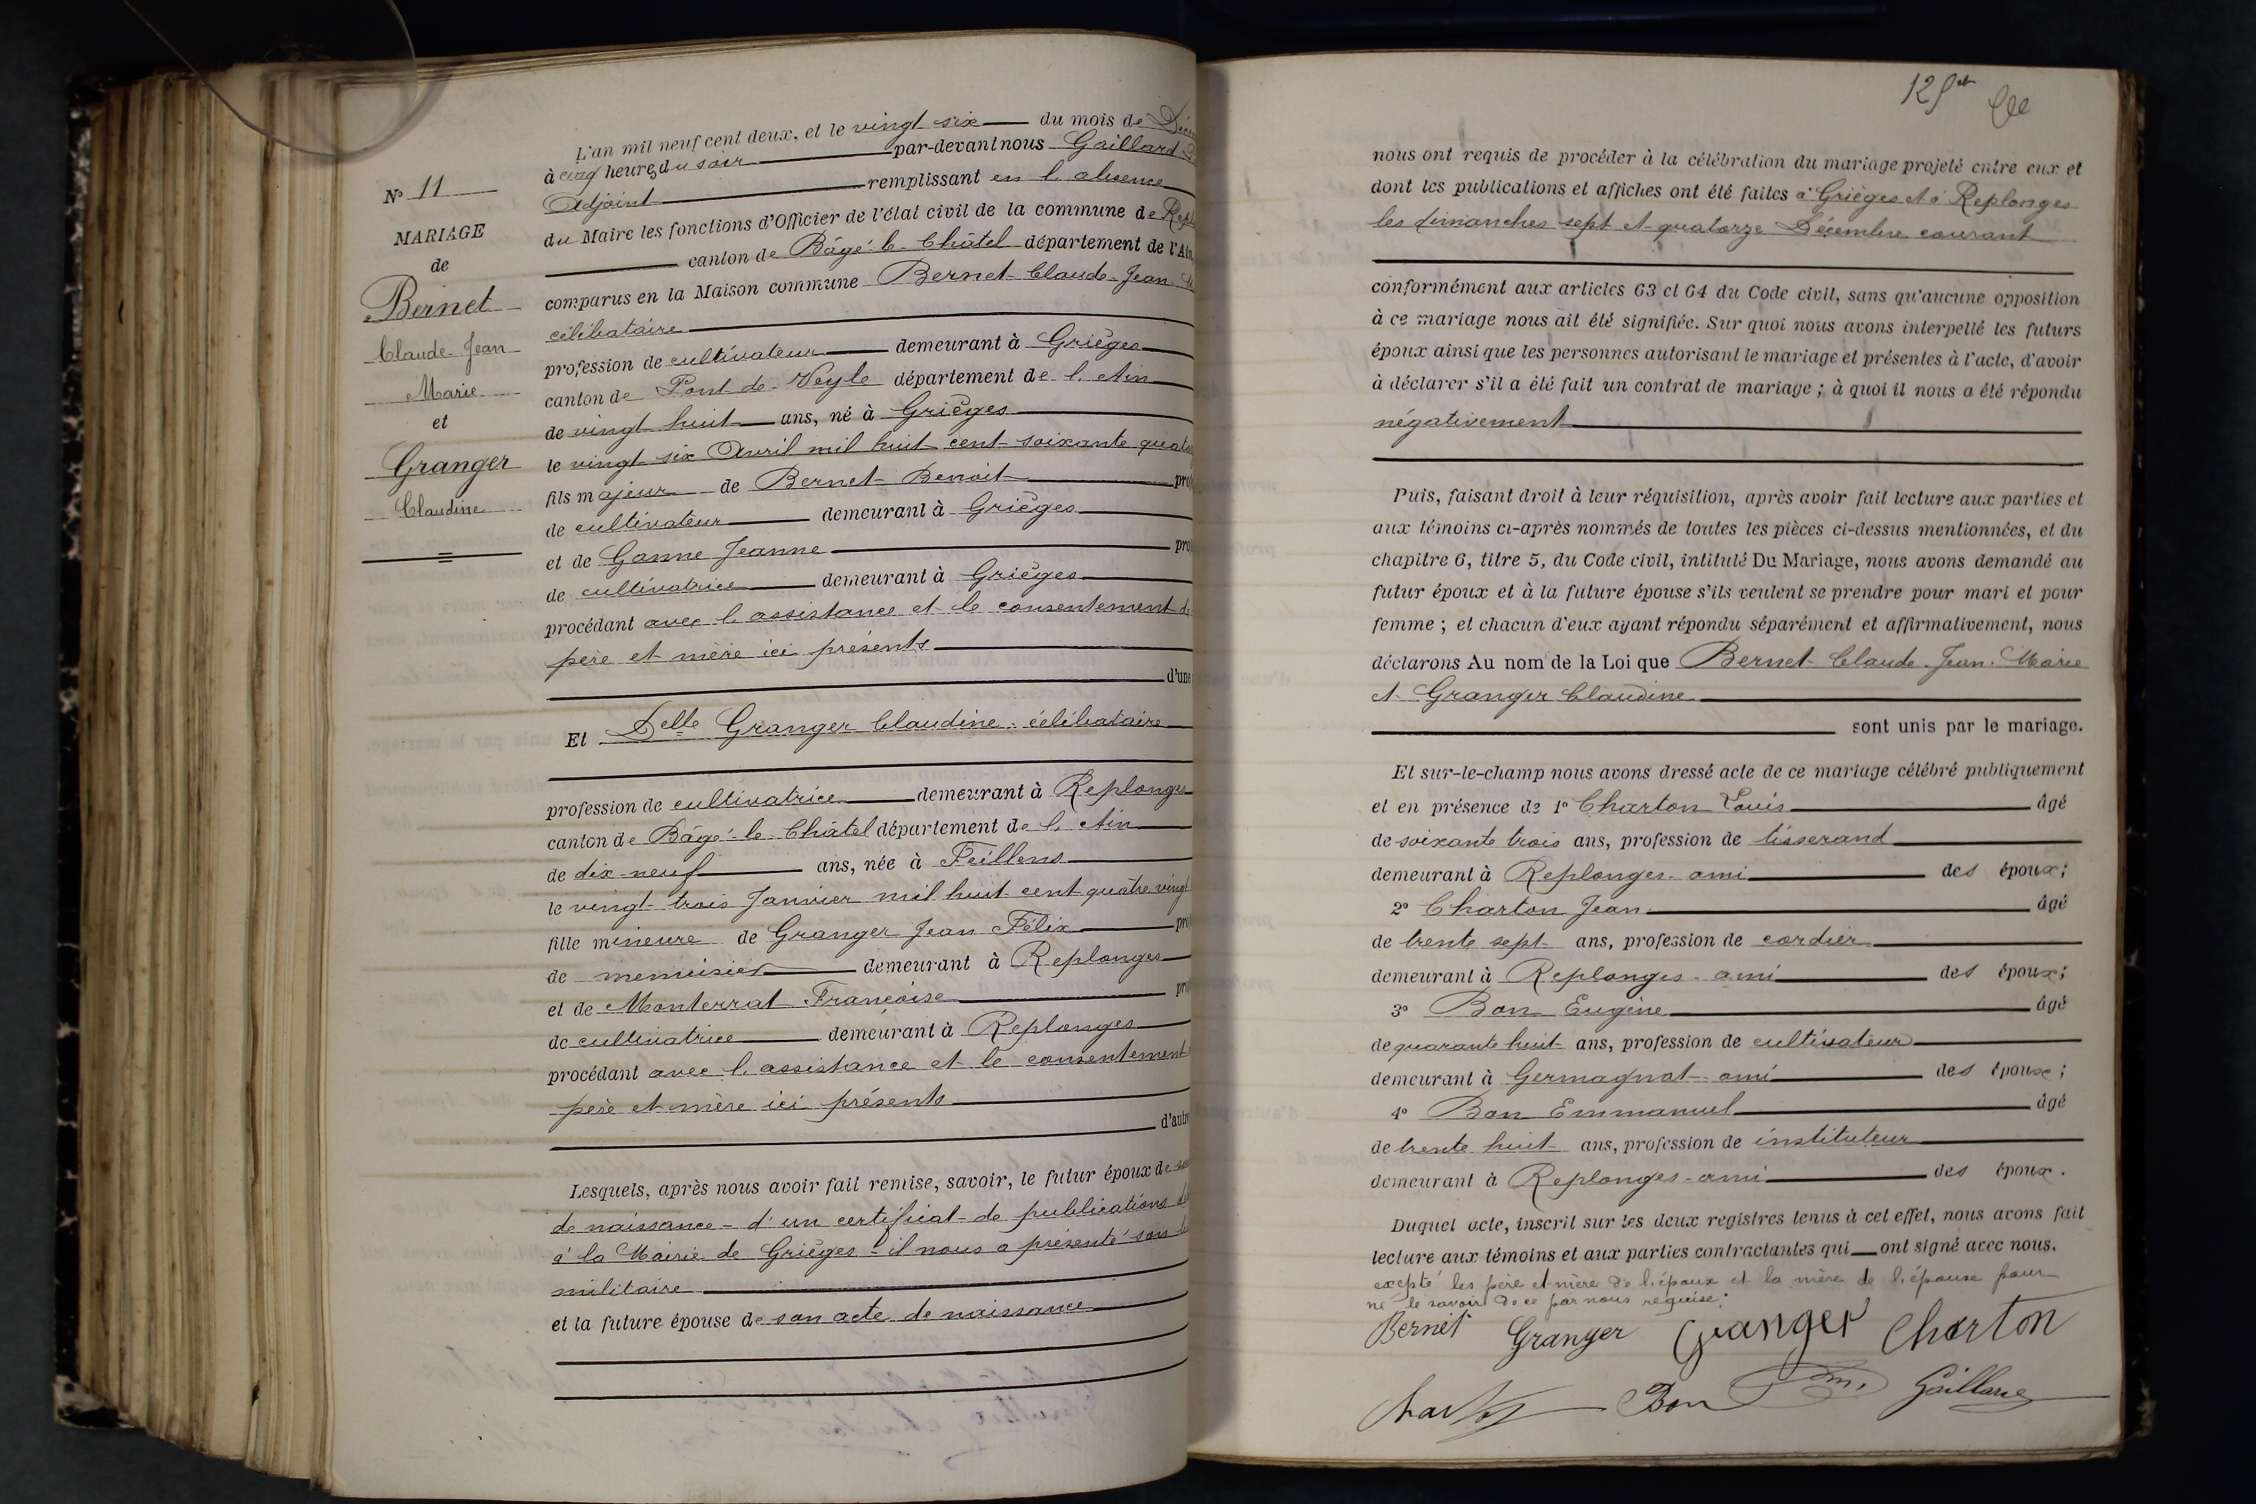 N° 11
MARIAGE
de
Bernet
Claude-Jean
Marie
et
Granger
Claudine
L'an mil neuf cent deux, et le vingt six du mois de
à cinq heures du soir par-devant nous Gaillard
Adjoint remplissant en l'absence
du Maire les fonctions d'Officier de l'état civil de la commune de Repl
canton de Bâgé-le-Châtel département de l'Ain
comparus en la Maison commune Bernet Claude-Jean
célibataire
profession de cultivateur demeurant à Grièges
canton de Pont-de-Veyle département de l'Ain
de vingt huit ans, né à Grièges
le vingt six Avril mil huit cent soixante quato
fils majeur de Bernet Benoit pro
de cultivateur demeurant à Grièges
et de Ganne Jeanne pro
de cultivatrice demeurant à Grièges
procédant avec l'assistance et le consentement de
père et mère ici présents
d'une
Et Delle Granger Claudine célibataire
profession de cultivatrice demeurant à Replonges
canton de Bâgé-le-Châtel département de l'Ain
de dix-neuf ans, née à Feillens
le vingt-trois Janvier mil huit cent quatre vingt
fille mineure de Granger Jean Félix pro
de menuisier demeurant à Replonges
et de Monterrat Françoise pro
de cultivatrice demeurant à Replonges
procédant avec l'assistance et le consentement
père et mère ici présents
d'autre
Lesquels, après nous avoir fait remise, savoir, le futur époux de
de naissance - d'un certificat de publications
à la Mairie de Grièges - il nous a présenté son
militaire
et la future épouse de son acte de naissance
nous ont requis de procéder à la célébration du mariage projeté entre eux et
dont les publications et affiches ont été faites à Grièges et à Replonges
les dimanches sept et quatorze Décembre courant
conformément aux articles 63 et 64 du Code civil, sans qu'aucune opposition
à ce mariage nous ait été signifiée. Sur quoi nous avons interpellé les futurs
époux ainsi que les personnes autorisant le mariage et présentes à l'acte, d'avoir
à déclarer s'il a été fait un contrat de mariage ; à quoi il nous a été répondu
négativement
Puis, faisant droit à leur réquisition, après avoir fait lecture aux parties et
aux témoins ci-après nommés de toutes les pièces ci-dessus mentionnées, et du
chapitre 6, titre 5, du Code civil, intitulé Du Mariage, nous avons demandé au
futur époux et à la future épouse s'ils veulent se prendre pour mari et pour
femme ; et chacun d'eux ayant répondu séparément et affirmativement, nous
déclarons Au nom de la Loi que Bernet Claude-Jean-Marie
et Granger Claudine
sont unis par le mariage.
Et sur-le-champ nous avons dressé acte de ce mariage célébré publiquement
et en présence de 1° Charton Louis âgé
de soixante trois ans, profession de tisserand
demeurant à Replonges - ami des époux ;
2° Charton Jean âgé
de trente sept ans, profession de cordier
demeurant à Replonges - ami des époux ;
3° Bon Eugène âgé
de quarante huit ans, profession de cultivateur
demeurant à Germagnat - ami des époux ;
4° Bon Emmanuel âgé
de trente huit ans, profession de instituteur
demeurant à Replonges - ami des époux.
Duquel acte, inscrit sur les deux registres tenus à cet effet, nous avons fait
lecture aux témoins et aux parties contractantes qui ont signé avec nous.
excepté les père et mère de l'époux et la mère de l'épouse pour
ne le savoir de ce par nous requise.
Bernet Granger Granger Charton
Charton Bon Gaillard